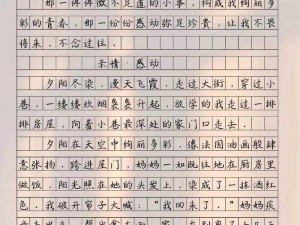 那一件件微不足道的小事，构成我绚丽多
彩的青春，那一份份感动弥足珍贵，让我不畏
将来，不念过往。
亲情·感动
夕阳尽染，漫天飞霞，走过大街，穿过小
巷，一缕缕炊烟袅袅升起，放学的我走过一排
排房屋，向着小巷最深处的家门口走去。
夕阳在天空中绚丽多彩，像法国油画般肆
意张扬，跨进屋门，妈妈一如既往地在厨房里
做饭，阳光照在她的头发上，染成了一抹酒红
色，我破开帘子大喊：“我回来了”妈妈疾